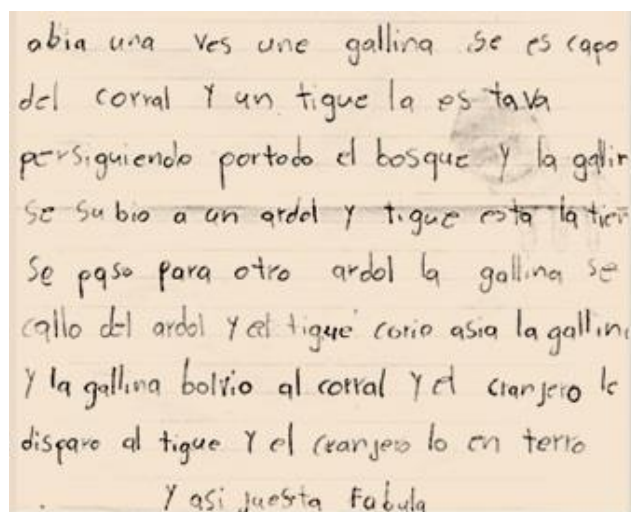 abia una ves une gallina se es capo
del corral Y un tigue la es tava
persiguiendo portodo el bosque Y la gallin
se subio a un ardol Y tigue esta la tier
se paso para otro ardol la gallina se
callo del ardol Y el tigue corio asia la gallin
Y la gallina bolvio al corral Y el cranjero le
disparo al tigue Y el cranjero lo en terro
Y asi juesta Fabula